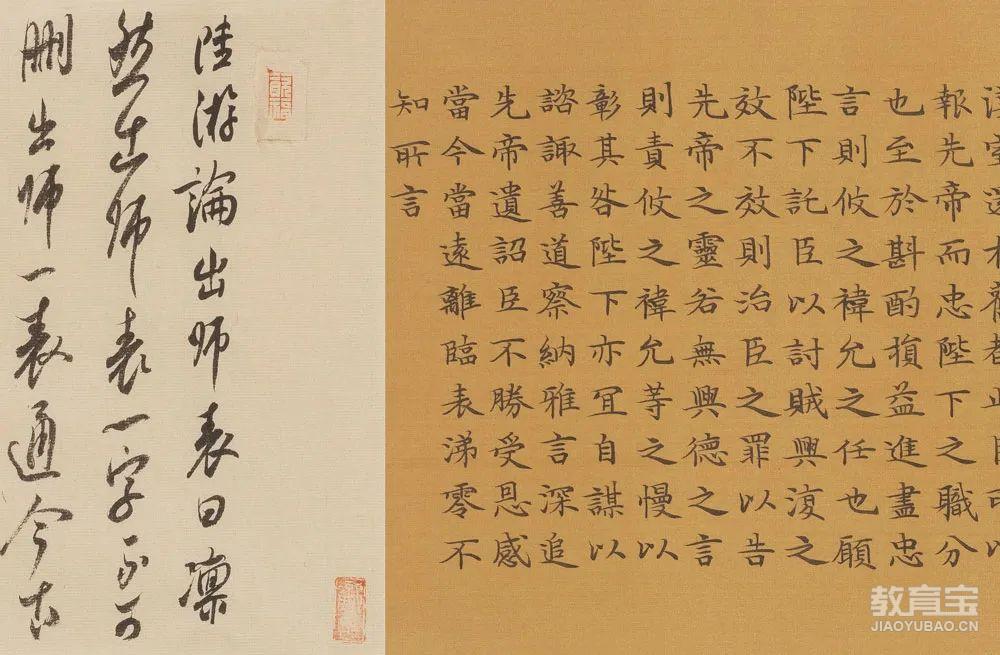 報先帝而忠陛下之職分
也至於斟酌損益進盡忠
言則攸之禕允之任也願
陛下託臣以討賊興復之
效不效則治臣之罪以告
先帝之靈若無興德之言
則責攸之禕允等之慢以
彰其咎陛下亦冝自謀以
諮諏善道察納雅言深追
先帝遺詔臣不勝受恩感
當今當遠離臨表涕零不
知所言
陸游論出师表曰凜
然出师表一字不可
删出师一表通今古
教育宝
JIAOYUBAO.CN